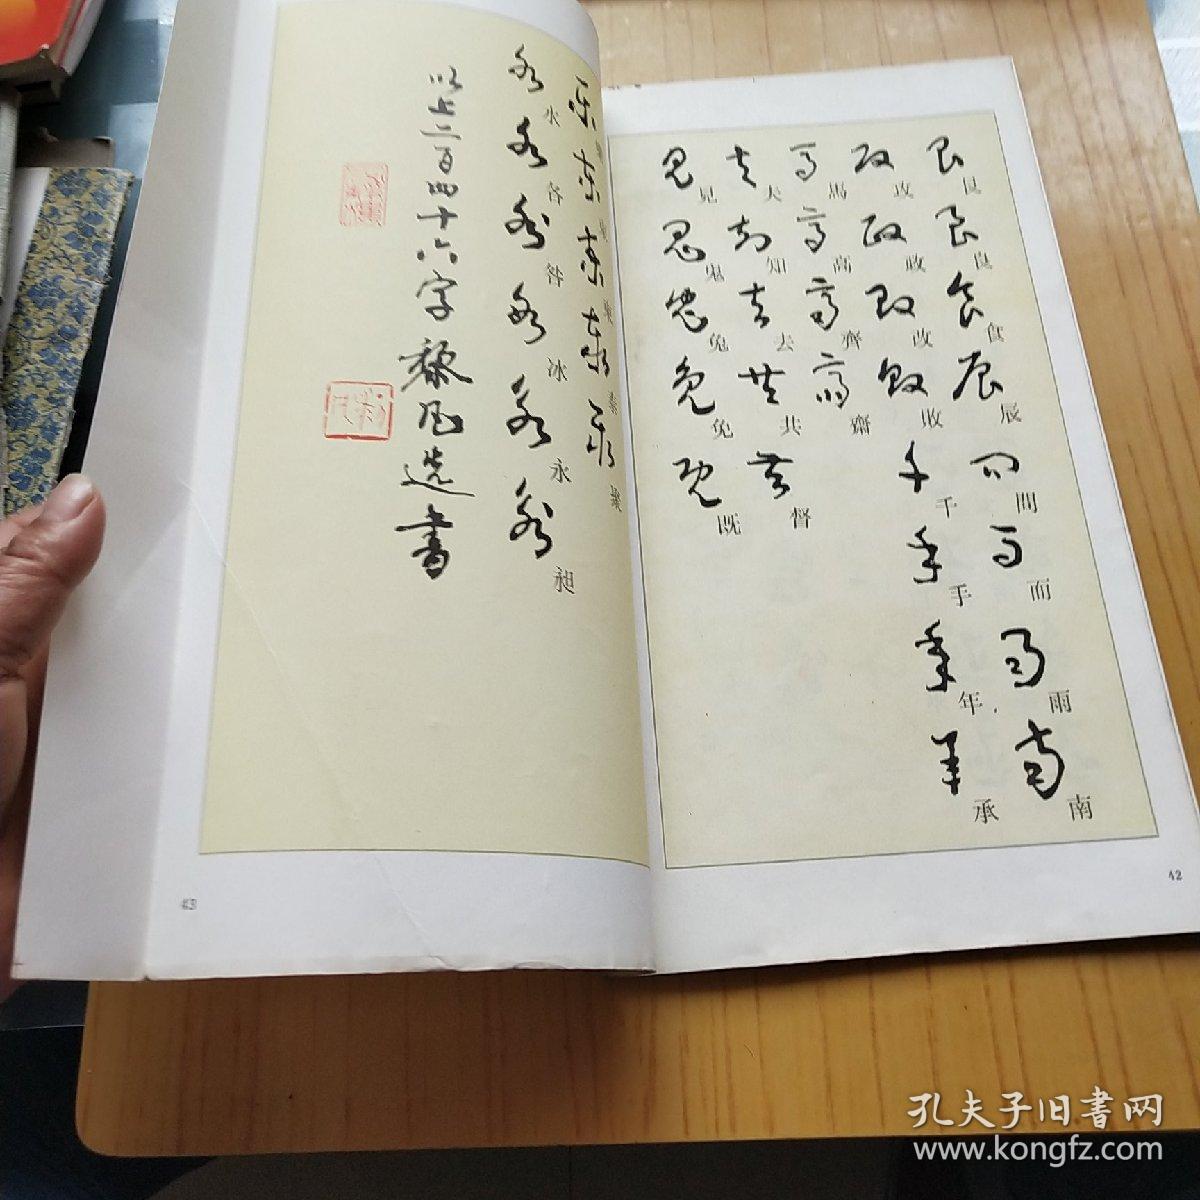 艮 良 食 辰 間 而 雨 南
攻 政 改 敗 千 手 年 承
馬 高 齊 齋
夫 知 去 共 督
見 鬼 兔 免 既
42
水 各 咎 冰 永 昶
以上二百四十六字蔡凡選書
43
孔夫子旧書网
www.kongfz.com